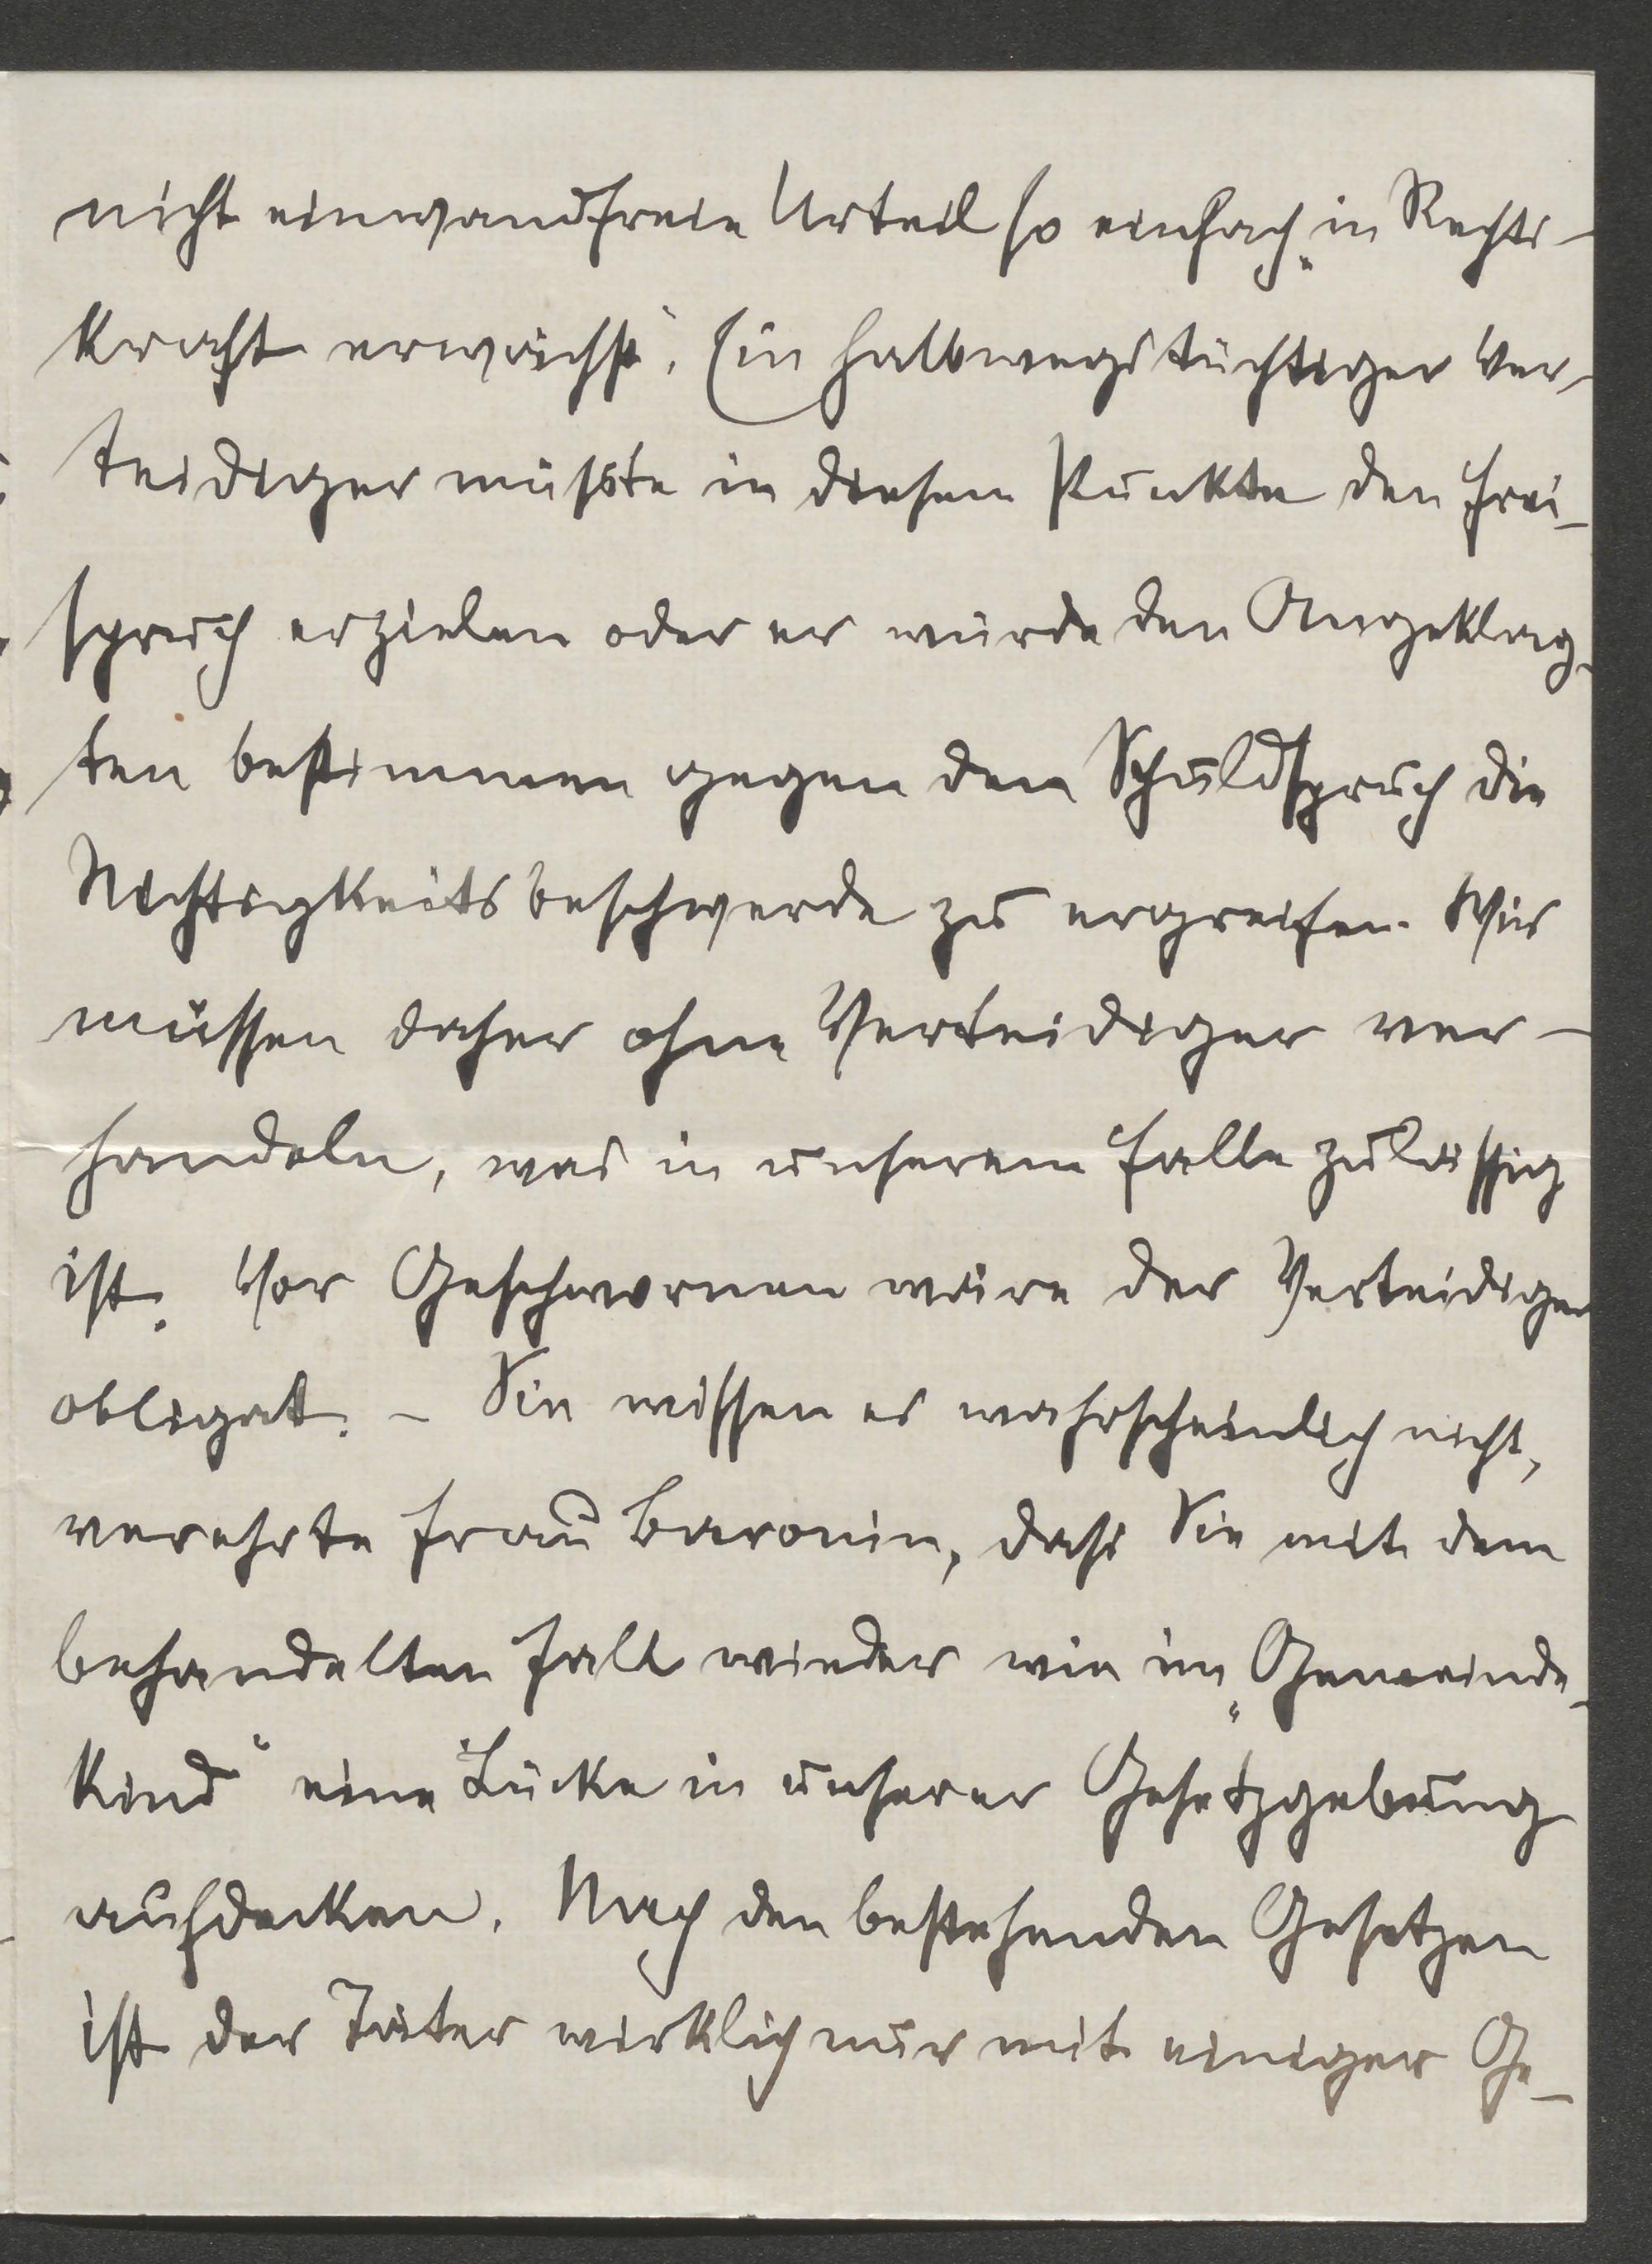 nicht einwandfreie Urteil so einfach „in Rechts-
kraft erwächst“. Ein halbwegs tüchtiger Ver-
teidiger müsste in diesem Punkte den Frei-
spruch erzielen oder er würde den Angeklag-
ten bestimmen gegen den Schuldspruch die
Nichtigkeitsbeschwerde zu ergreifen. Wir
müssen daher ohne Verteidiger ver-
handeln, was in unserem Falle zulässig
ist. Vor Geschwornen wäre der Verteidiger
obligat. – Sie wissen es wahrscheinlich nicht,
verehrte Frau Baronin, dass Sie mit dem
behandelten Fall wieder wie im „Gemeinde-
kind“ eine Lücke in unserer Gesetzgebung
aufdecken. Nach den bestehenden Gesetzen
ist der Täter wirklich nur mit einiger Ge-